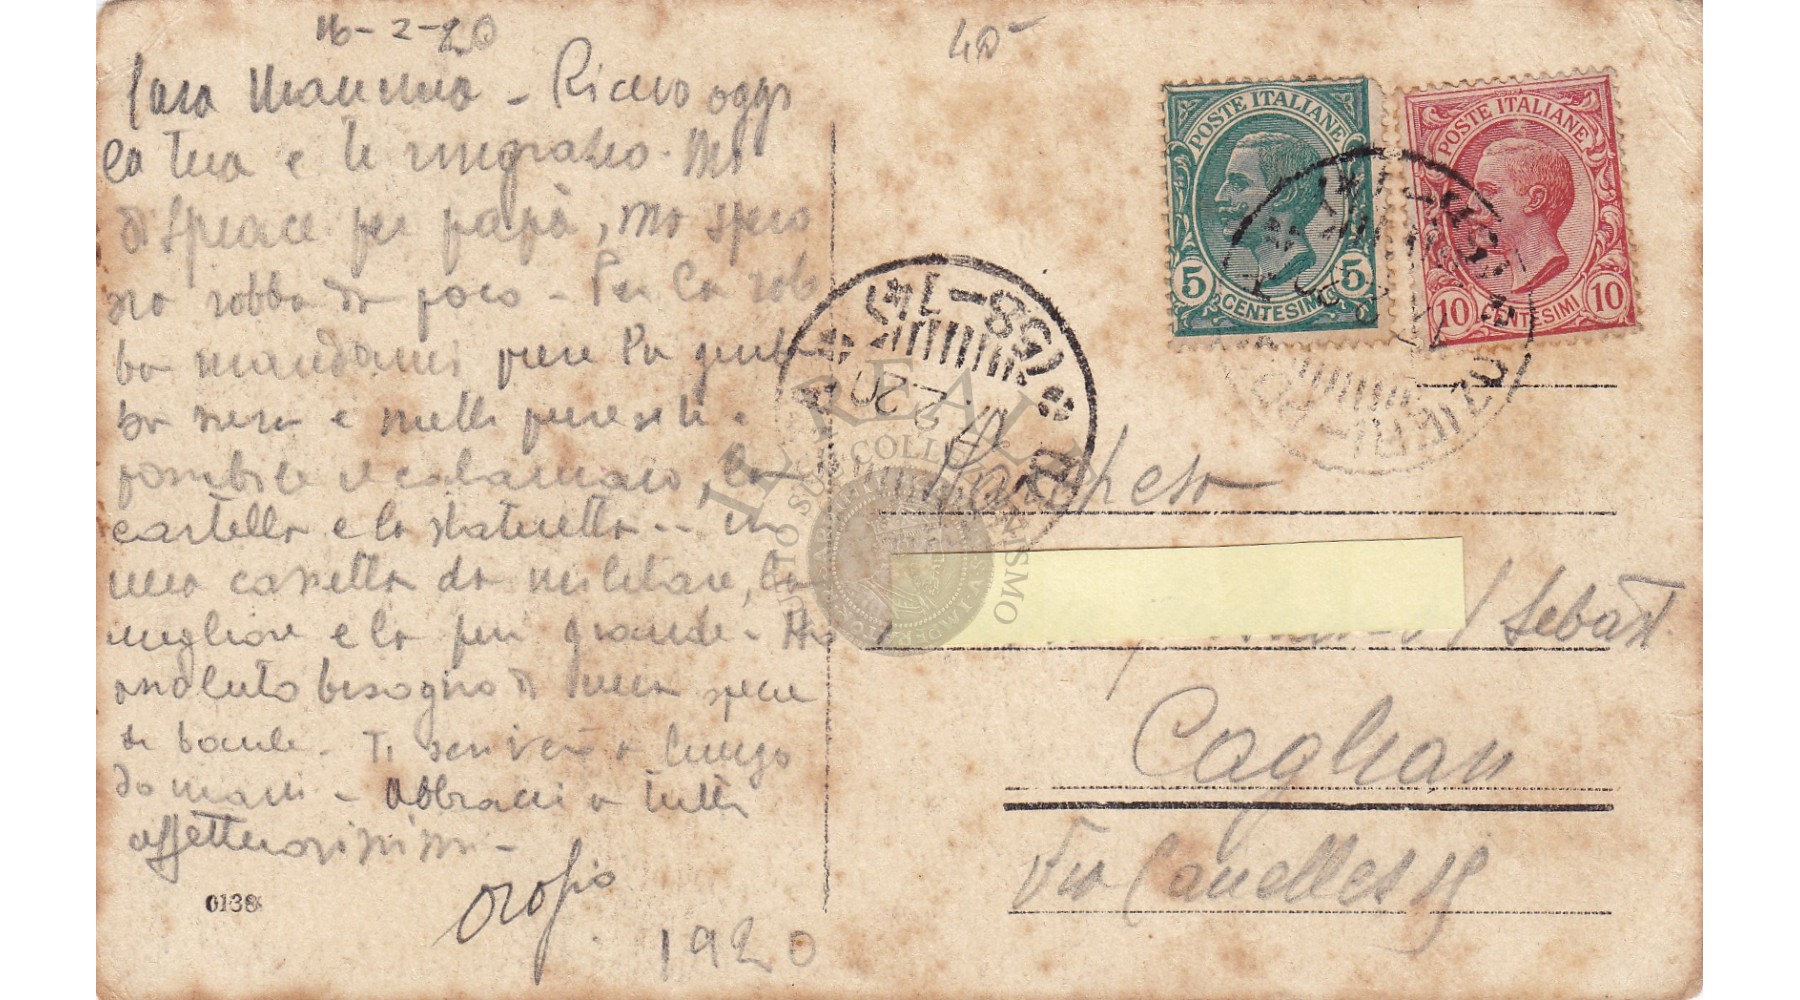 16-2-20
Cara Mamma - Ricevo oggi
la tua e ti ringrazio. Mi
dispiace per papà, ma spero
sia robba da poco - Per la rob
ba mandami pure la giub
ba nera e metti pure se è
possibile il calamaio, la
cartella e la statuetta -- in
una cassetta da militare, la
migliore e la più grande - Ho
assoluto bisogno di una specie
di baule - Ti scriverò a lungo
domani - Abbracci a tutti
affettuosissimi -
0138
1920
40-
POSTE ITALIANE
5 5
CENTESIMI
POSTE ITALIANE
10 10
CENTESIMI
(58-14)
2-20
IL REALE
STUDIO SUL COLLEZIONISMO
Marchesa
Sebast
Cagliari
Via Canelles 15